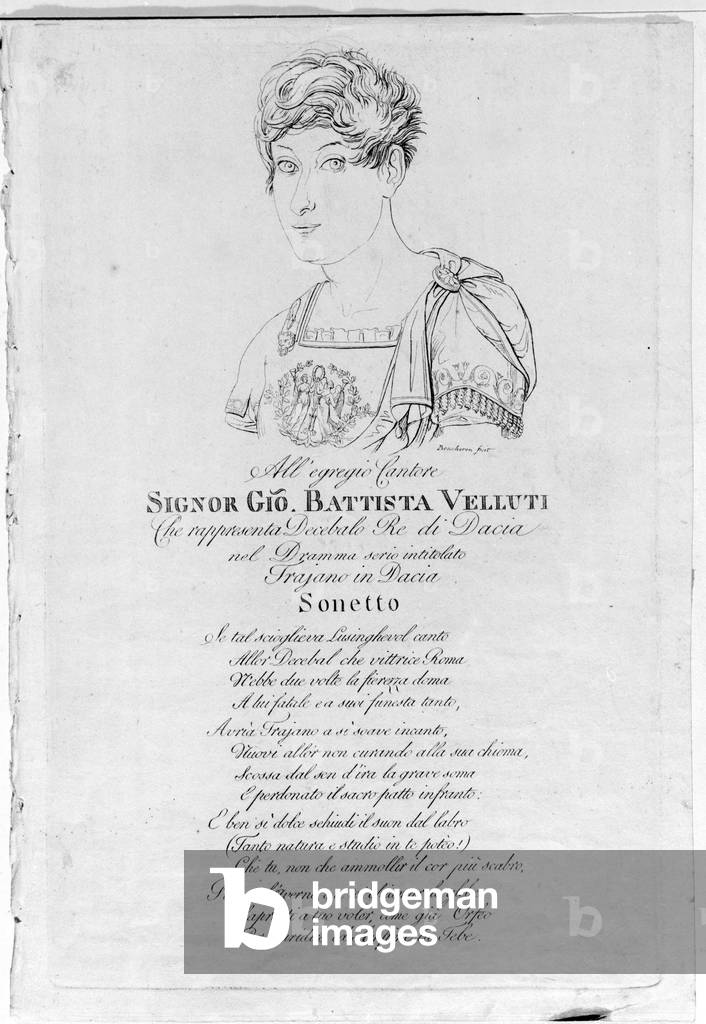 Boucheron fecit
All'egregio Cantore
SIGNOR GIO. BATTISTA VELLUTI
Che rappresenta Decebalo Re di Dacia
nel Dramma serio intitolato
Trajano in Dacia
Sonetto
Se tal scioglieva Lusinghevol canto
Allor Decebal che vittrice Roma
N'ebbe due volte la fierezza doma
A lui fatale e a suoi funesta tanto,
Avria Trajano a sì soave incanto,
Nuovi allór non curando alla sua chioma,
Scossa dal sen d'ira la grave soma
E perdonato il sacro patto infranto:
E ben sì dolce schiudi il suon dal labro
(Tanto natura e studio in te poteo!)
Chè tu, non che ammollir il cor più scabro,
a tuo voler, come già Orfeo
Tebe.
bridgeman
images